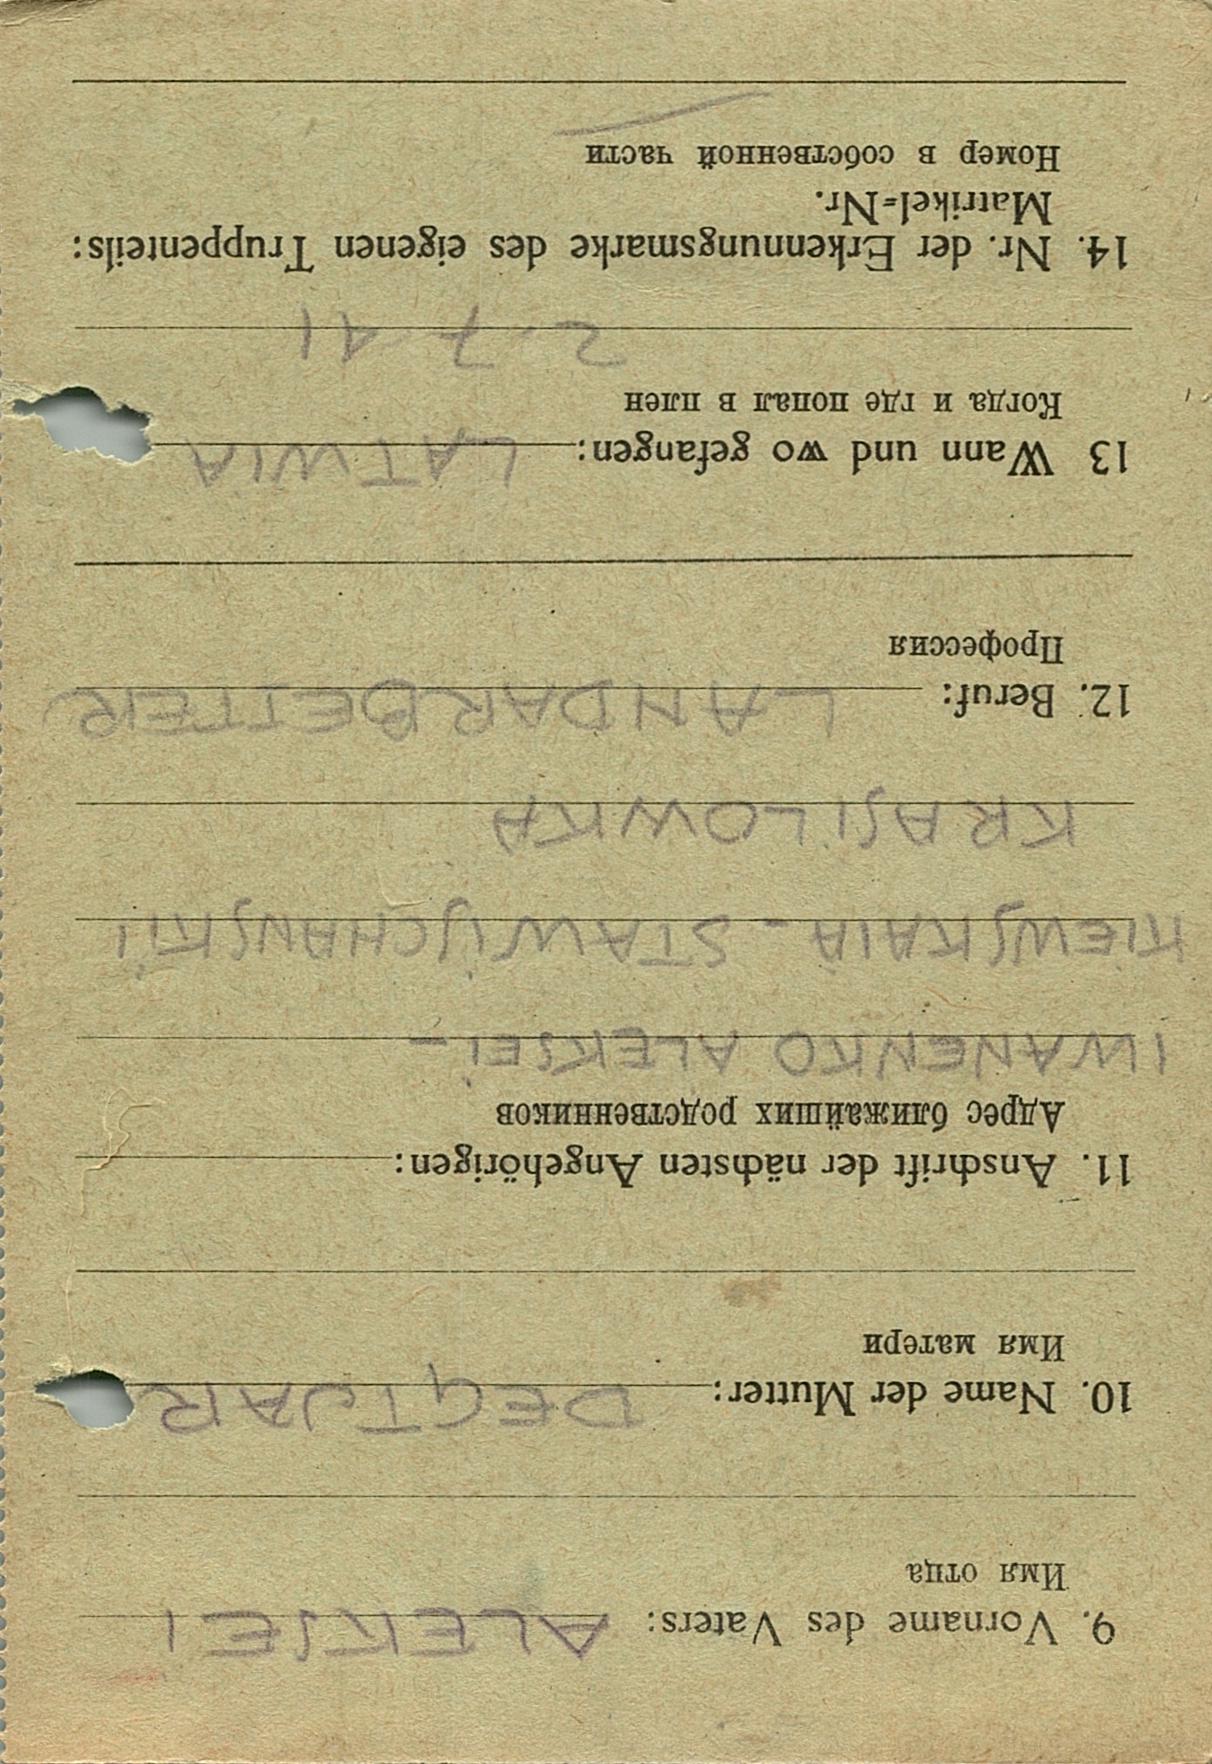 9. Vorname des Vaters: ALEKSEI
Имя отца
10. Name der Mutter: DEGTJAR
Имя матери
11. Anschrift der nächsten Angehörigen:
Адрес ближайших родственников
IWANENKO ALEKSEI -
KIEWSKAIA - STAWISCHANSKII
KRASILOWKA
12. Beruf: LANDARBEITER
Профессия
13 Wann und wo gefangen: LATWIA
Когда и где попал в плен
2.7 41
14. Nr. der Erkennungsmarke des eigenen Truppenteils:
Matrikel=Nr.
Номер в собственной части